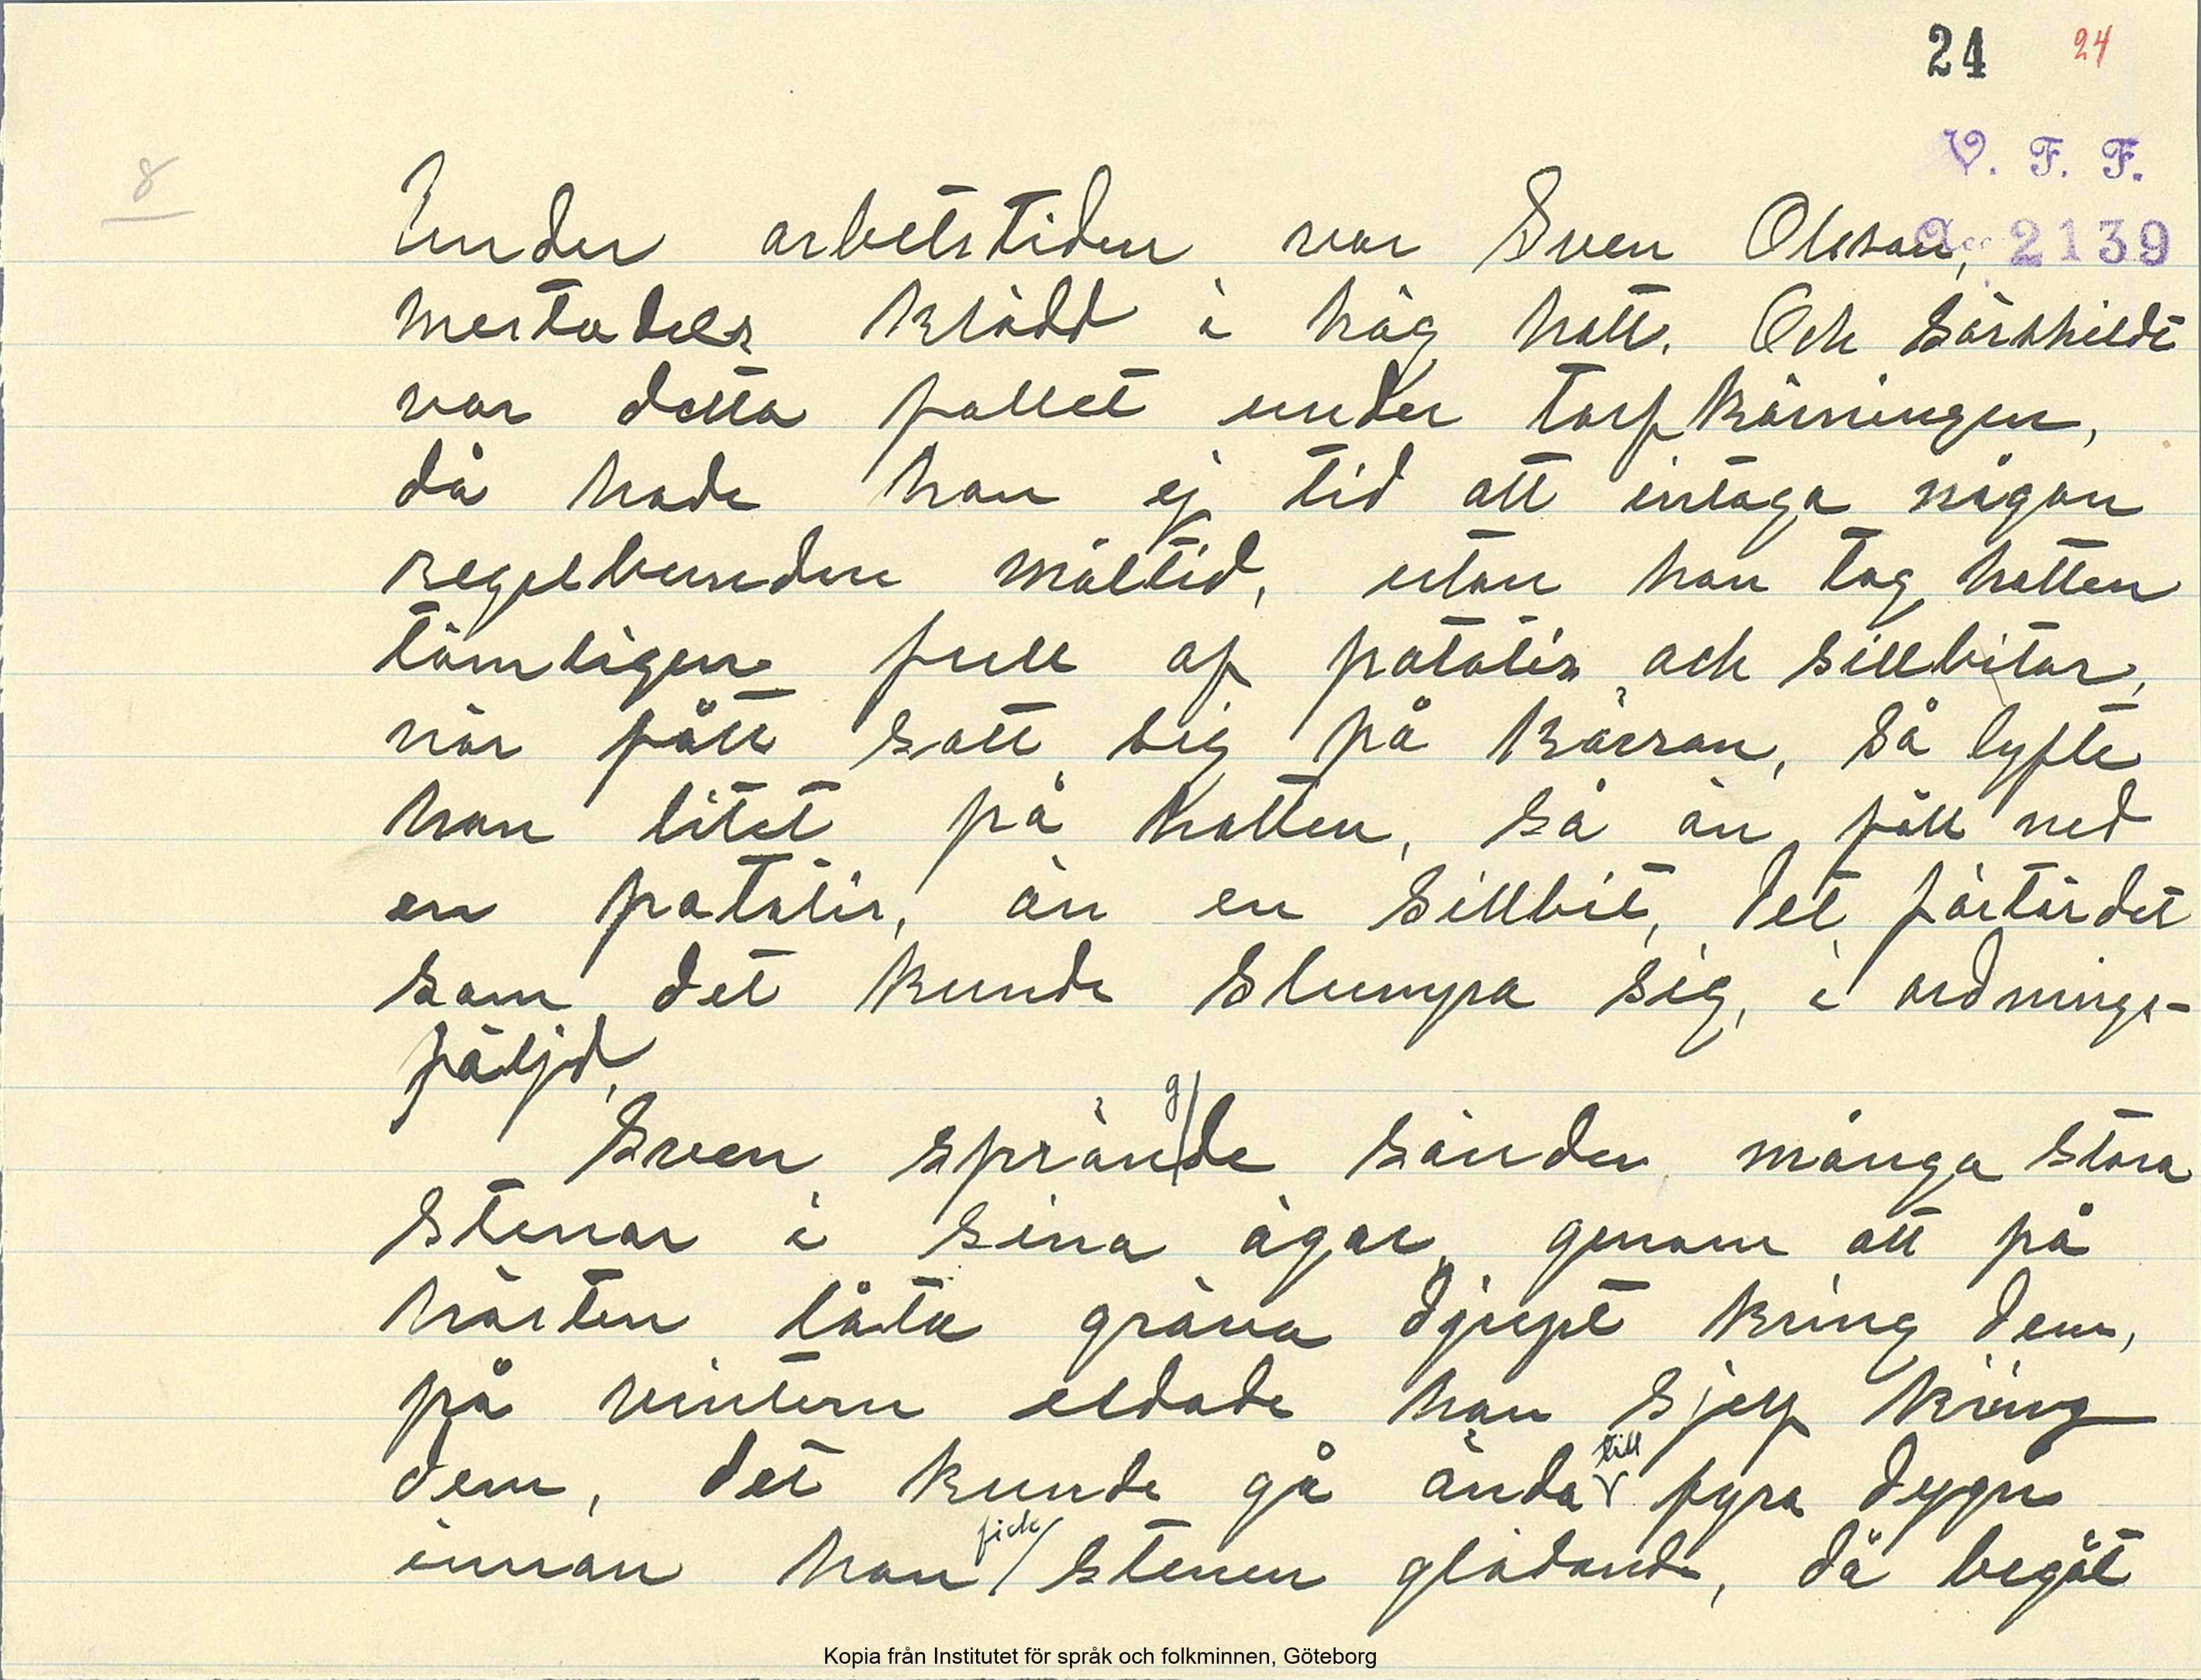 24 24
V. F. F.
Acc 2139
8
Under arbetstiden var Sven Olsson,
mestadels klädd i hög hatt. Och särskildt
var detta fallet under torfkörningen,
då hade han ej tid att intaga någon
regelbunden måltid, utan han tog hatten
tämligen full af potatis och sillbitar,
när fått satt sig på kärran, så lyfte
han litet på hatten, så än föll ned
en potatis, än en sillbit, Det förtärdet
som det kunde slumpa sig, i ordnings-
följd.
Sven sprängde sönder många stora
stenar i sina ägor, genom att på
hösten låta gräva djupt kring dem,
på vintern eldade han sjelf kring
dem, det kunde gå ända till fyra dygn
innan han fick stenen glödande, då begöt
Kopia från Institutet för språk och folkminnen, Göteborg